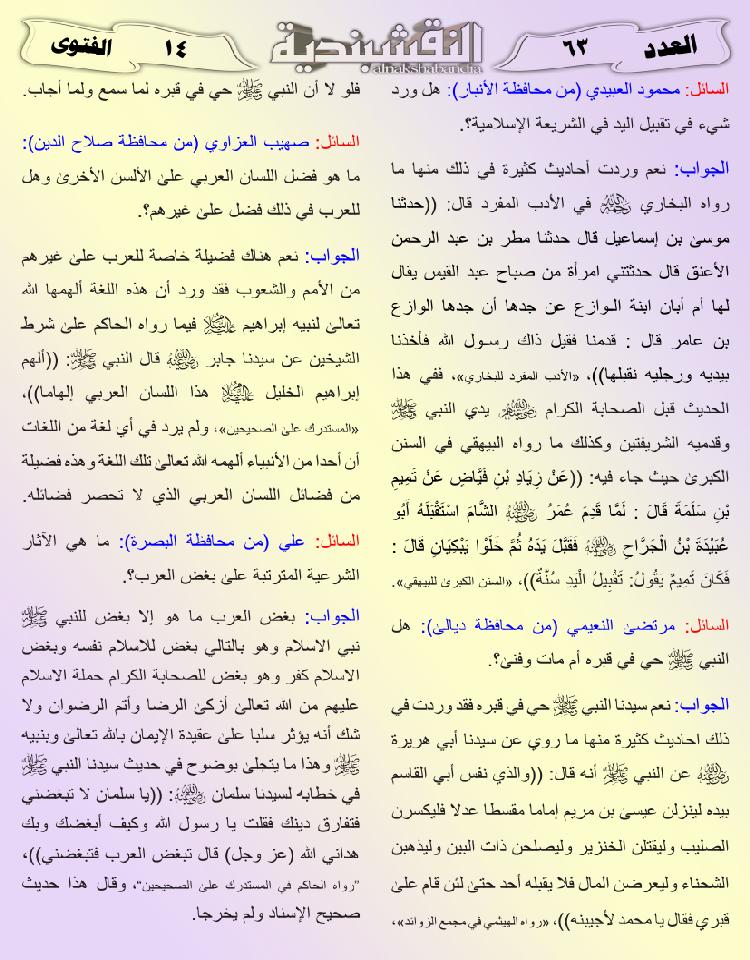 العدد ٦٣
النقشبندية
alnakshabandia
١٤ الفتوى
السائل: محمود العبيدي (من محافظة الأنبار): هل ورد
شيء في تقبيل اليد في الشريعة الإسلامية؟.
الجواب: نعم وردت أحاديث كثيرة في ذلك منها ما
رواه البخاري رحمه الله في الأدب المفرد قال: ((حدثنا
موسى بن إسماعيل قال حدثنا مطر بن عبد الرحمن
الأعنق قال حدثتني امرأة من صباح عبد القيس يقال
لها أم أبان ابنة الوازع عن جدها أن جدها الوازع
بن عامر قال : قدمنا فقيل ذاك رسول الله فأخذنا
بيديه ورجليه نقبلها))، «الأدب المفرد للبخاري»، ففي هذا
الحديث قبل الصحابة الكرام رضي الله عنهم يدي النبي ﷺ
وقدميه الشريفتين وكذلك ما رواه البيهقي في السنن
الكبرى حيث جاء فيه: ((عَنْ زِيَادِ بْنِ فَيَّاضٍ عَنْ تَمِيمِ
بْنِ سَلَمَةَ قَالَ : لَمَّا قَدِمَ عُمَرُ رضي الله عنه الشَّامَ اسْتَقْبَلَهُ أَبُو
عُبَيْدَةَ بْنُ الْجَرَّاحِ رضي الله عنه فَقَبَّلَ يَدَهُ ثُمَّ خَلَوْا يَبْكِيَانِ قَالَ :
فَكَانَ تَمِيمٌ يَقُولُ: تَقْبِيلُ الْيَدِ سُنَّةٌ))، «السنن الكبرى للبيهقي».
السائل: مرتضى النعيمي (من محافظة ديالى): هل
النبي ﷺ حي في قبره أم مات وفنى؟.
الجواب: نعم سيدنا النبي ﷺ حي في قبره فقد وردت في
ذلك احاديث كثيرة منها ما روي عن سيدنا أبي هريرة
رضي الله عنه عن النبي ﷺ أنه قال: ((والذي نفس أبي القاسم
بيده لينزلن عيسى بن مريم إماما مقسطا عدلا فليكسرن
الصليب وليقتلن الخنزير وليصلحن ذات البين وليذهبن
الشحناء وليعرضن المال فلا يقبله أحد حتى لئن قام على
قبري فقال يا محمد لأجيبنه))، «رواه الهيثمي في مجمع الزوائد»،
فلو لا أن النبي ﷺ حي في قبره لما سمع ولما أجاب.
السائل: صهيب العزاوي (من محافظة صلاح الدين):
ما هو فضل اللسان العربي على الألسن الأخرى وهل
للعرب في ذلك فضل على غيرهم؟.
الجواب: نعم هناك فضيلة خاصة للعرب على غيرهم
من الأمم والشعوب فقد ورد أن هذه اللغة ألهمها الله
تعالى لنبيه إبراهيم عليه السلام فيما رواه الحاكم على شرط
الشيخين عن سيدنا جابر رضي الله عنه قال النبي ﷺ: ((ألهم
إبراهيم الخليل عليه السلام هذا اللسان العربي إلهاما))،
«المستدرك على الصحيحين»، ولم يرد في أي لغة من اللغات
أن أحدا من الأنبياء ألهمه الله تعالى تلك اللغة وهذه فضيلة
من فضائل اللسان العربي الذي لا تحصر فضائله.
السائل: علي (من محافظة البصرة): ما هي الآثار
الشرعية المترتبة على بغض العرب؟.
الجواب: بغض العرب ما هو إلا بغض للنبي ﷺ
نبي الاسلام وهو بالتالي بغض للاسلام نفسه وبغض
الاسلام كفر وهو بغض للصحابة الكرام حملة الاسلام
عليهم من الله تعالى أزكى الرضا وأتم الرضوان ولا
شك أنه يؤثر سلبا على عقيدة الإيمان بالله تعالى وبنبيه
ﷺ وهذا ما يتجلى بوضوح في حديث سيدنا النبي ﷺ
في خطابه لسيدنا سلمان رضي الله عنه: ((يا سلمان لا تبغضني
فتفارق دينك فقلت يا رسول الله وكيف أبغضك وبك
هداني الله (عز وجل) قال تبغض العرب فتبغضني))،
"رواه الحاكم في المستدرك على الصحيحين"، وقال هذا حديث
صحيح الإسناد ولم يخرجا.